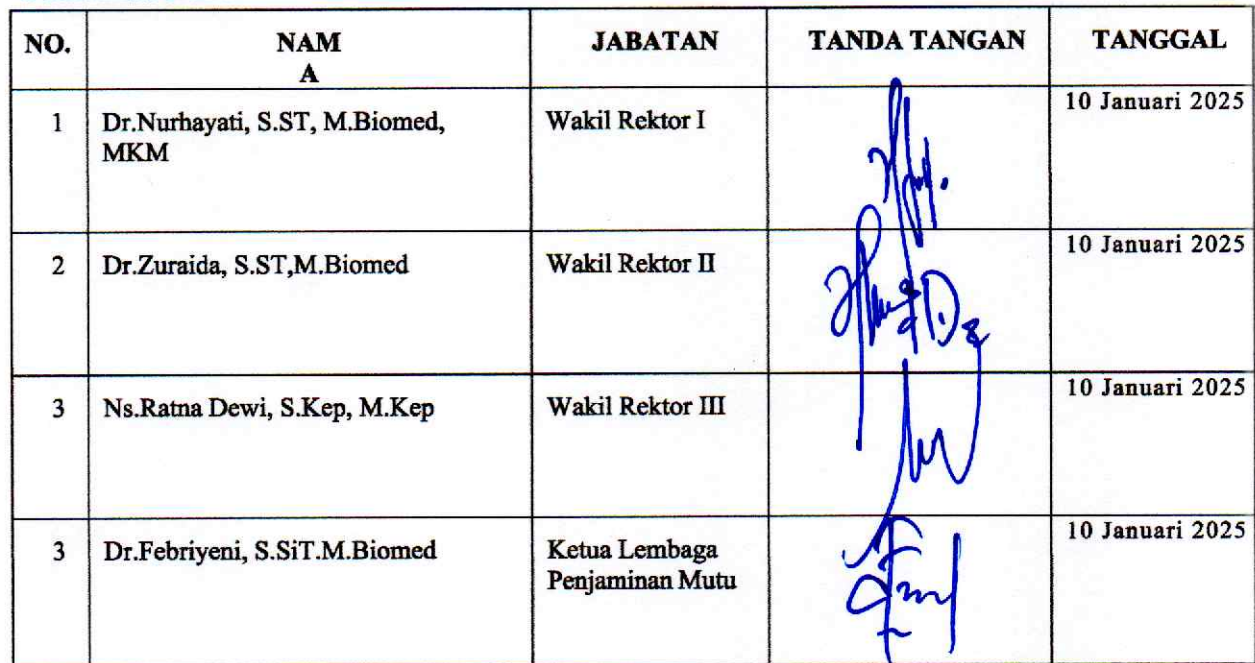 NO. NAM JABATAN TANDA TANGAN TANGGAL
A
1 Dr.Nurhayati, S.ST, M.Biomed, Wakil Rektor I 10 Januari 2025
MKM
2 Dr.Zuraida, S.ST,M.Biomed Wakil Rektor II 10 Januari 2025
3 Ns.Ratna Dewi, S.Kep, M.Kep Wakil Rektor III 10 Januari 2025
3 Dr.Febriyeni, S.SiT.M.Biomed Ketua Lembaga 10 Januari 2025
Penjaminan Mutu